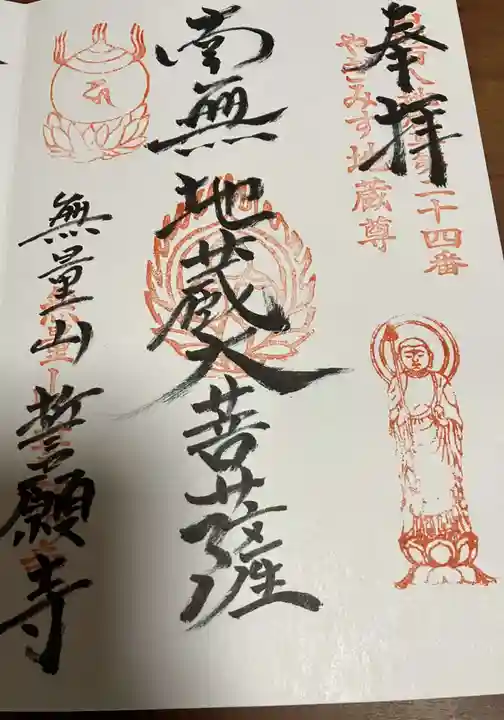 奉拝
二十四番
やごみす地蔵尊
南無地蔵大菩薩
無量山
誓願寺